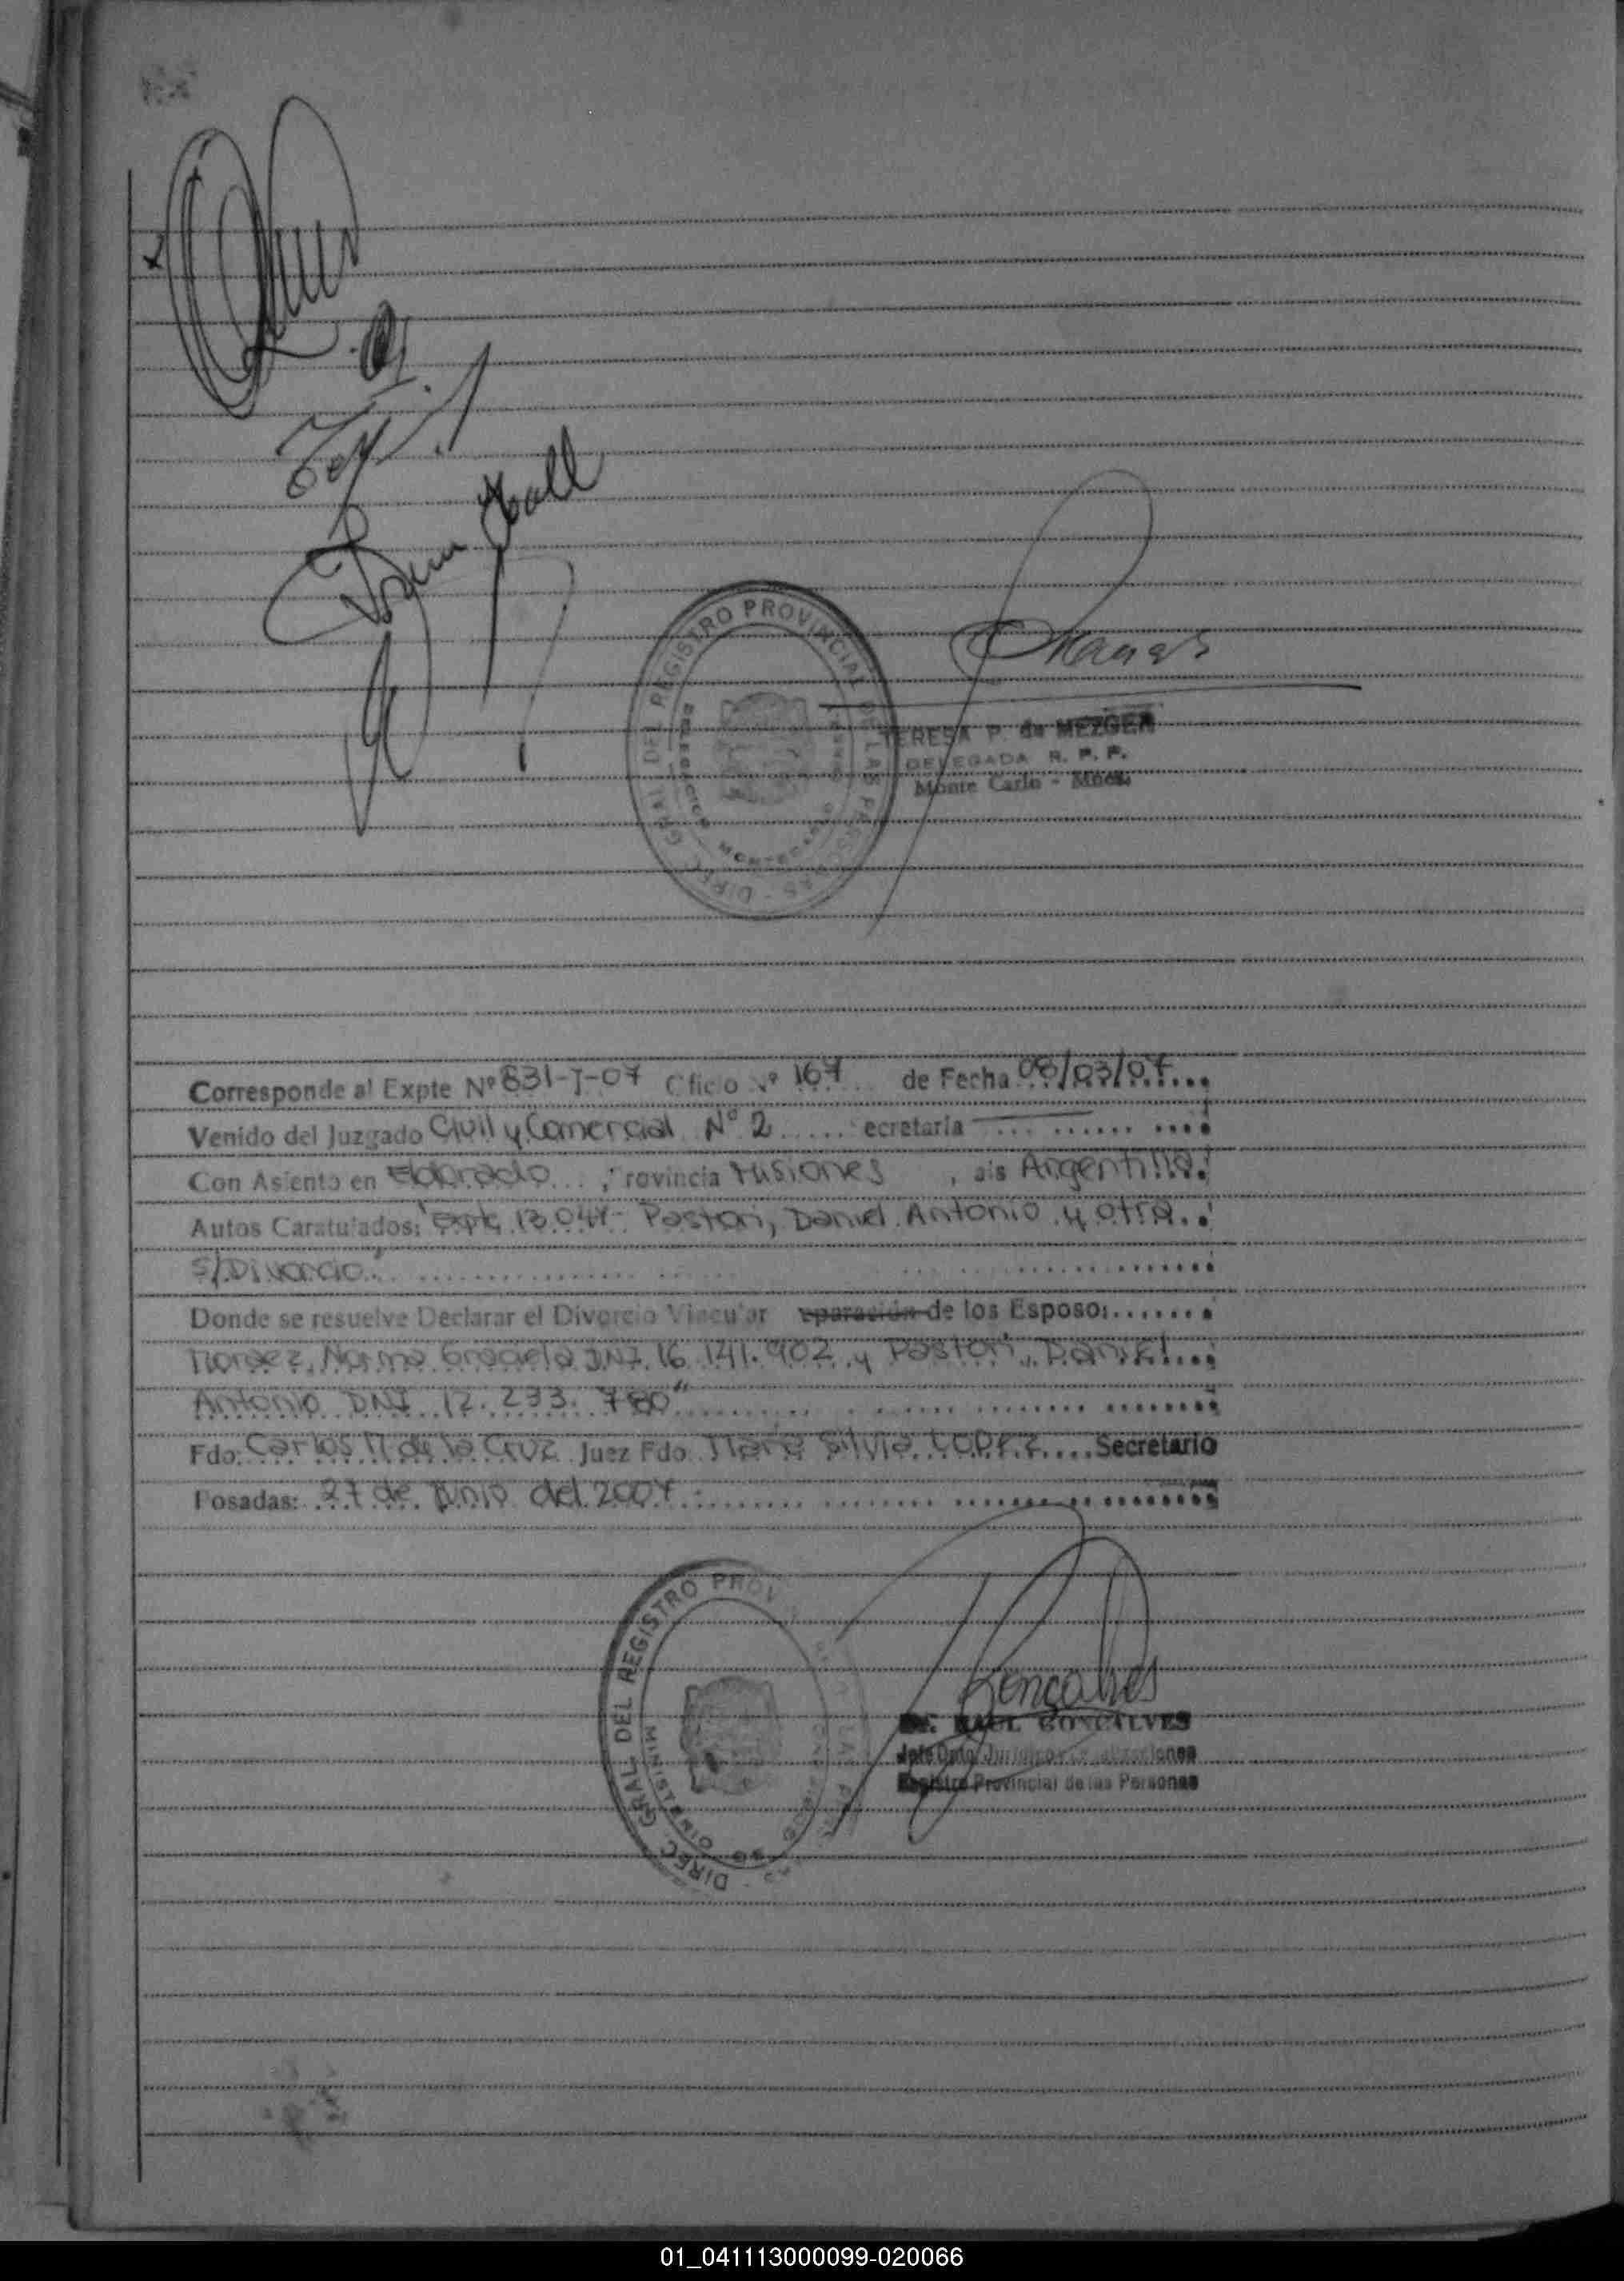 DIREC. GRAL. DEL REGISTRO PROVINCIAL DE LAS PERSONAS
TERESA P. de MEZGER
DELEGADA R. P. P.
Monte Carlo - Mnes.
Corresponde al Expte Nº 831-J-07 Oficio Nº 167 de Fecha 08/03/07
Venido del Juzgado Civil y Comercial Nº 2 ecretaria
Con Asiento en Eldorado, rovincia Misiones, ais Argentina
Autos Caratulados: "Expte 13.044- Pastori, Daniel Antonio y otra
S/Divorcio"
Donde se resuelve Declarar el Divorcio Vincular eparación de los Esposo:
Norma Graciela DNI 16.141.902 y Pastori, Daniel
Antonio DNI 12.233.780"
Fdo: Carlos M. de la Cruz Juez Fdo. María Silvia LOPEZ Secretario
Posadas: 27 de Junio del 2007
DIREC. GRAL. DEL REGISTRO PROV
MINISTERIO
Gonçalves
Dr. RAUL GONCALVES
Jefe Dpto. Jurídico
Registro Provincial de las Personas
01_041113000099-020066